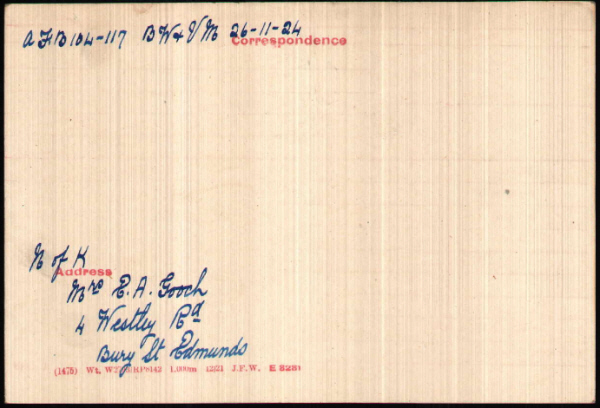 AFB104-117 BW&VM 26-11-24
Correspondence
N of K
Address
Mrs E. A. Gooch
4 Westley Rd
Bury St Edmunds
(1475) Wt. 12/21 J.F.W. E 8231